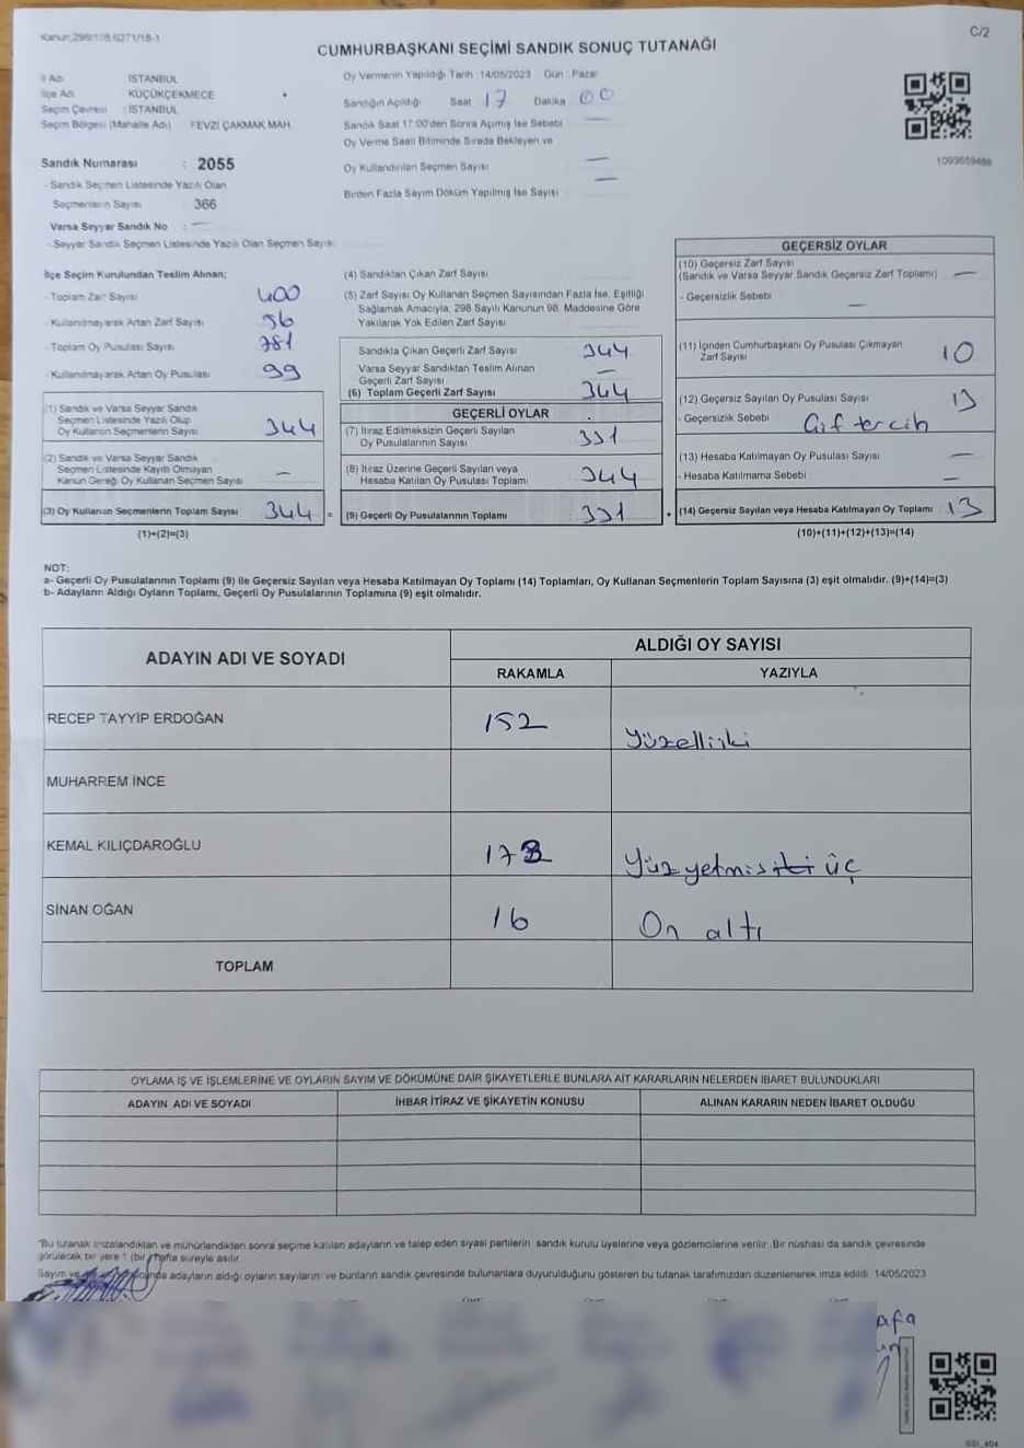 C/2
CUMHURBAŞKANI SEÇİMİ SANDIK SONUÇ TUTANAĞI
İl Adı : İSTANBUL
İlçe Adı : KÜÇÜKÇEKMECE
Seçim Çevresi : İSTANBUL
Seçim Bölgesi (Mahalle Adı) : FEVZİ ÇAKMAK MAH.
Oy Vermenin Yapıldığı Tarih : 14/05/2023 Gün : Pazar
Sandığın Açıldığı Saat 17 Dakika 00
Sandık Saat 17:00'den Sonra Açılmış İse Sebebi —
Oy Verme Saati Bitiminde Sırada Bekleyen ve
Oy Kullandırılan Seçmen Sayısı —
Birden Fazla Sayım Döküm Yapılmış İse Sayısı —
1093659488
Sandık Numarası : 2055
- Sandık Seçmen Listesinde Yazılı Olan
Seçmenlerin Sayısı 366
Varsa Seyyar Sandık No : —
- Seyyar Sandık Seçmen Listesinde Yazılı Olan Seçmen Sayısı
İlçe Seçim Kurulundan Teslim Alınan;
- Toplam Zarf Sayısı 400
- Kullanılmayarak Artan Zarf Sayısı 56
- Toplam Oy Pusulası Sayısı 381
- Kullanılmayarak Artan Oy Pusulası 99
(1) Sandık ve Varsa Seyyar Sandık
Seçmen Listesinde Yazılı Olup
Oy Kullanan Seçmenlerin Sayısı 344
(2) Sandık ve Varsa Seyyar Sandık
Seçmen Listesinde Kayıtlı Olmayan
Kanun Gereği Oy Kullanan Seçmen Sayısı —
(3) Oy Kullanan Seçmenlerin Toplam Sayısı 344 =
(1)+(2)=(3)
(4) Sandıktan Çıkan Zarf Sayısı
(5) Zarf Sayısı Oy Kullanan Seçmen Sayısından Fazla İse, Eşitliği
Sağlamak Amacıyla, 298 Sayılı Kanunun 98. Maddesine Göre
Yakılarak Yok Edilen Zarf Sayısı
Sandıkta Çıkan Geçerli Zarf Sayısı 344
Varsa Seyyar Sandıktan Teslim Alınan
Geçerli Zarf Sayısı —
(6) Toplam Geçerli Zarf Sayısı 344
GEÇERLİ OYLAR
(7) İtiraz Edilmeksizin Geçerli Sayılan
Oy Pusulalarının Sayısı 331
(8) İtiraz Üzerine Geçerli Sayılan veya
Hesaba Katılan Oy Pusulası Toplamı 344
(9) Geçerli Oy Pusulalarının Toplamı 331 +
GEÇERSİZ OYLAR
(10) Geçersiz Zarf Sayısı
(Sandık ve Varsa Seyyar Sandık Geçersiz Zarf Toplamı) —
- Geçersizlik Sebebi —
(11) İçinden Cumhurbaşkanı Oy Pusulası Çıkmayan
Zarf Sayısı 10
(12) Geçersiz Sayılan Oy Pusulası Sayısı 13
- Geçersizlik Sebebi Çif tercih
(13) Hesaba Katılmayan Oy Pusulası Sayısı —
- Hesaba Katılmama Sebebi —
(14) Geçersiz Sayılan veya Hesaba Katılmayan Oy Toplamı 13
(10)+(11)+(12)+(13)=(14)
NOT:
a- Geçerli Oy Pusulalarının Toplamı (9) ile Geçersiz Sayılan veya Hesaba Katılmayan Oy Toplamı (14) Toplamları, Oy Kullanan Seçmenlerin Toplam Sayısına (3) eşit olmalıdır. (9)+(14)=(3)
b- Adayların Aldığı Oyların Toplamı, Geçerli Oy Pusulalarının Toplamına (9) eşit olmalıdır.
ADAYIN ADI VE SOYADI
ALDIĞI OY SAYISI
RAKAMLA YAZIYLA
RECEP TAYYİP ERDOĞAN 152 Yüzelliiki
MUHARREM İNCE
KEMAL KILIÇDAROĞLU 173 Yüzyetmiş iki üç
SİNAN OĞAN 16 On altı
TOPLAM
OYLAMA İŞ VE İŞLEMLERİNE VE OYLARIN SAYIM VE DÖKÜMÜNE DAİR ŞİKAYETLERLE BUNLARA AİT KARARLARIN NELERDEN İBARET BULUNDUKLARI
ADAYIN ADI VE SOYADI İHBAR İTİRAZ VE ŞİKAYETİN KONUSU ALINAN KARARIN NEDEN İBARET OLDUĞU
"Bu tutanak imzalandıktan ve mühürlendikten sonra seçime katılan adayların ve talep eden siyasi partilerin sandık kurulu üyelerine veya gözlemcilerine verilir. Bir nüshası da sandık çevresinde
görülecek bir yere 1 (bir) hafta süreyle asılır.
Sayım ve adayların aldığı oyların sayılarını ve bunların sandık çevresinde bulunanlara duyurulduğunu gösteren bu tutanak tarafımızdan düzenlenerek imza edildi. 14/05/2023
afa